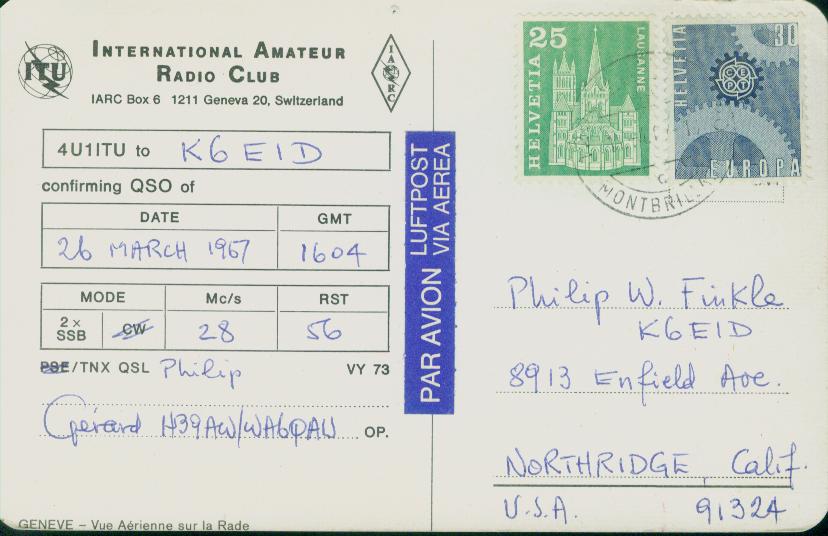 INTERNATIONAL AMATEUR
RADIO CLUB
IARC Box 6 1211 Geneva 20, Switzerland
ITU
IARC
4U1ITU to K6EID
confirming QSO of
DATE GMT
26 MARCH 1967 1604
MODE Mc/s RST
2x SSB CW 28 56
PSE/TNX QSL Philip VY 73
Gérard H39AW/WA6QAU OP.
GENEVE – Vue Aérienne sur la Rade
PAR AVION LUFTPOST
VIA AEREA
25
HELVETIA
LAUSANNE
HELVETIA
30
CEPT
EUROPA
MONTBRIL
Philip W. Finkle
K6EID
8913 Enfield Ave.
NORTHRIDGE, Calif.
U.S.A. 91324